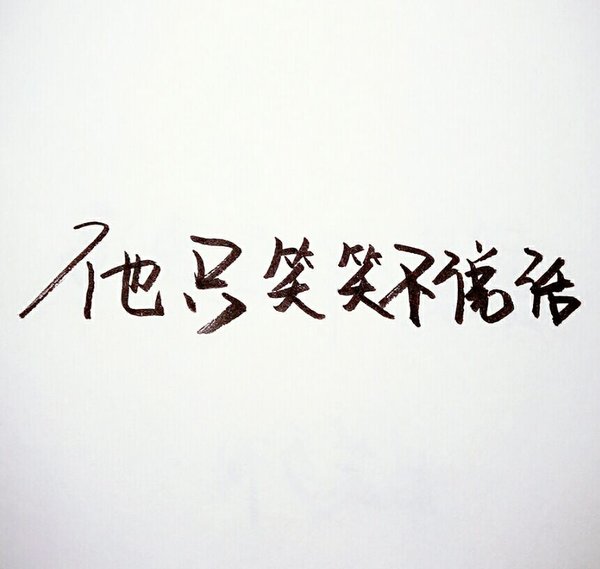 他只笑笑不说话